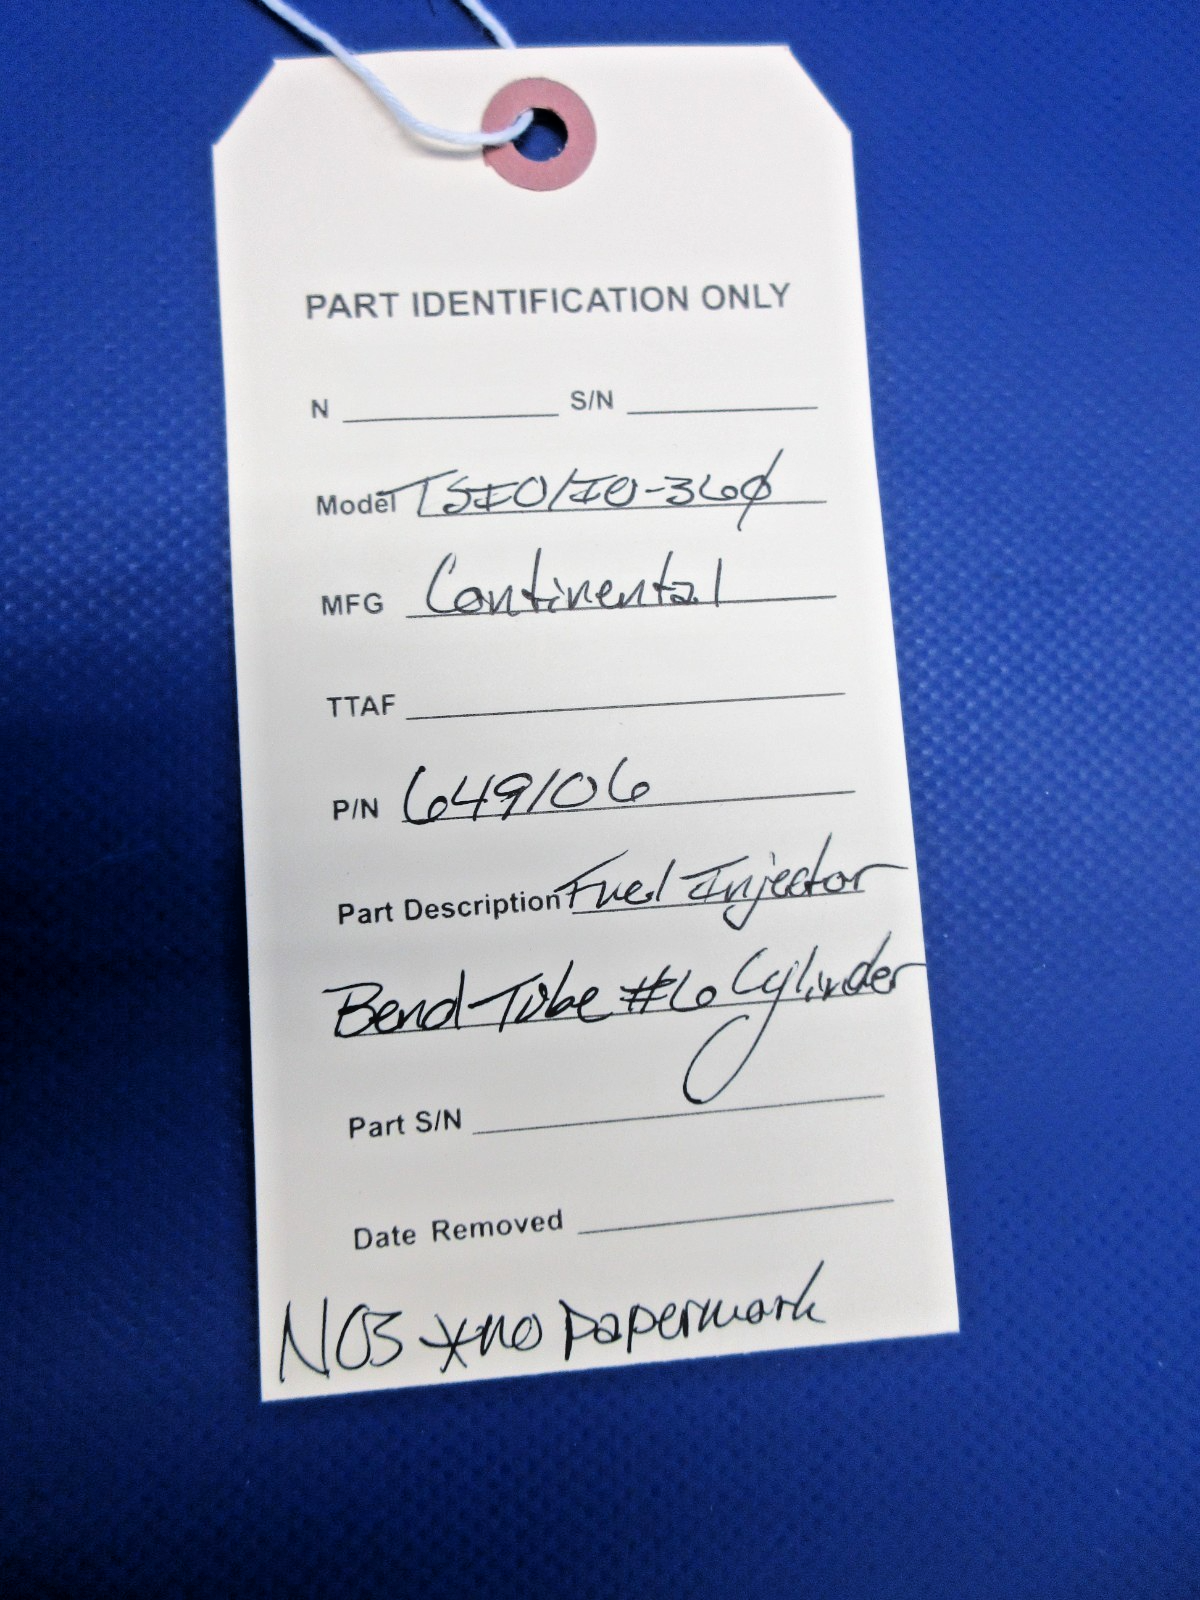 PART IDENTIFICATION ONLY
N S/N
Model TSIO/IO-360
MFG Continental
TTAF
P/N 649106
Part Description Fuel Injector
Bend Tube #6 Cylinder
Part S/N
Date Removed
NOS *no paperwork